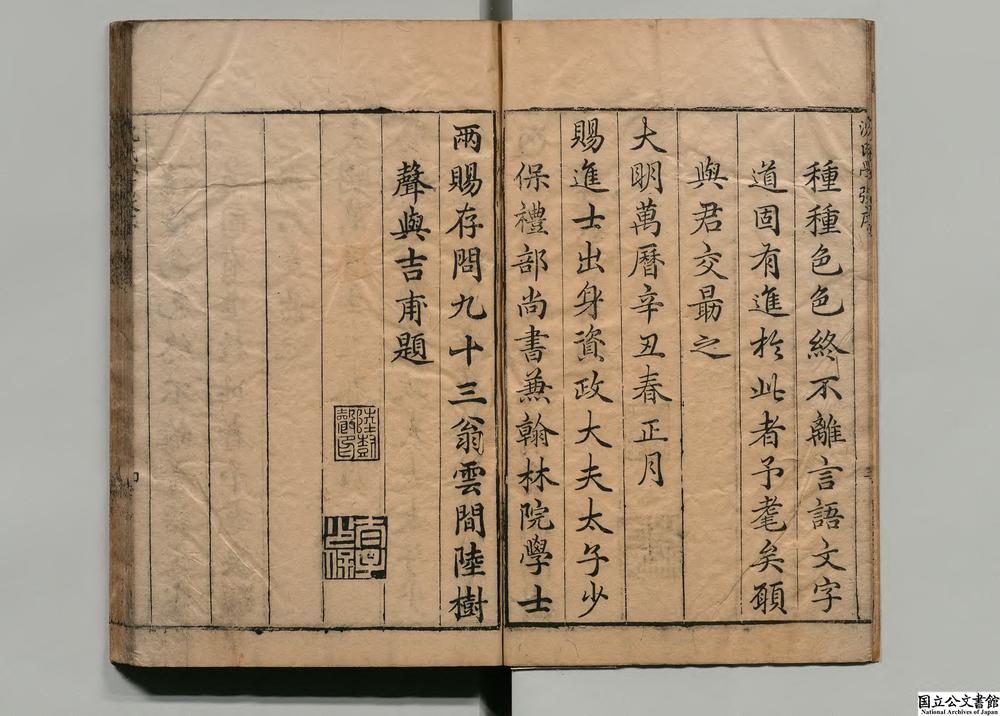 種種色色終不離言語文字
道固有進於此者予耄矣願
與君交勗之
大明萬曆辛丑春正月
賜進士出身資政大夫太子少
保禮部尚書兼翰林院學士
兩賜存問九十三翁雲間陸樹
聲與吉甫題
陸樹
聲印
宮保
国立公文書館
National Archives of Japan